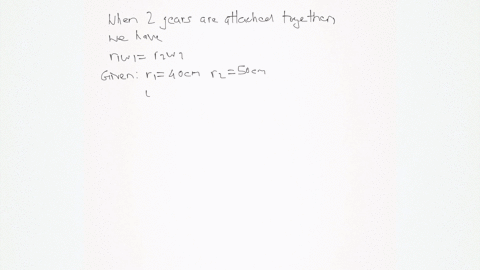 When 2 gears are attached together
we have
r1w1 = r2w2
Given: r1 = 40cm r2 = 50cm